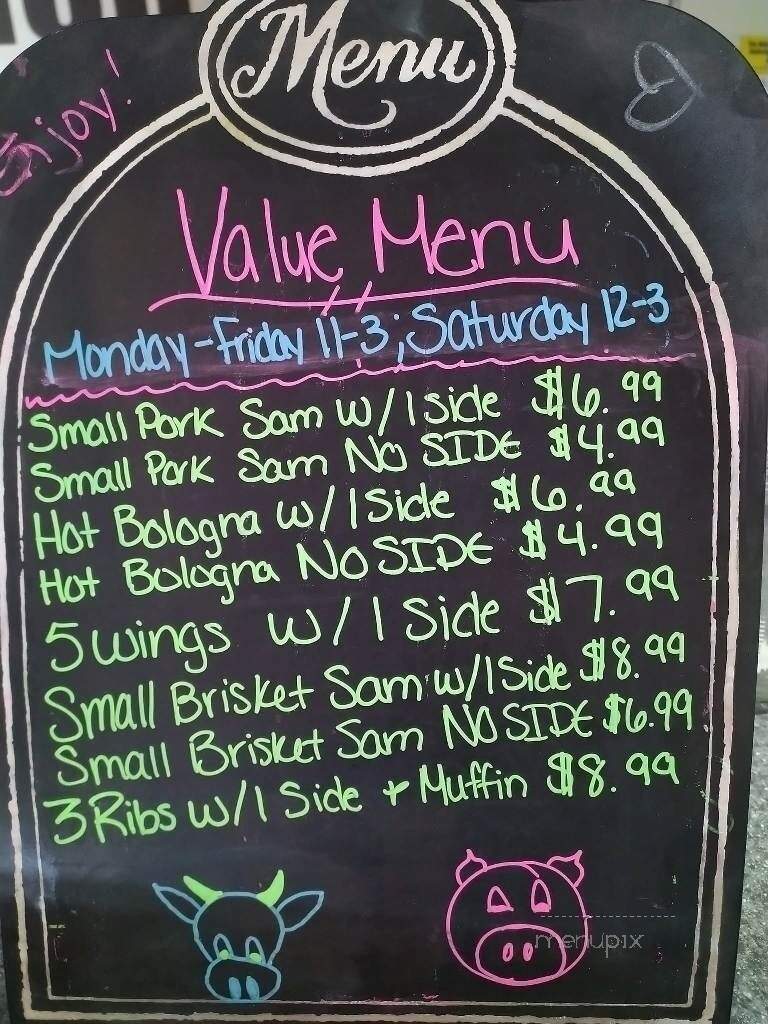 Menu
Enjoy!
Value Menu
Monday-Friday 11-3; Saturday 12-3
Small Pork Sam W/1 side $6.99
Small Pork Sam No SIDE $4.99
Hot Bologna w/1 Side $6.99
Hot Bologna No SIDE $4.99
5 wings w/1 Side $7.99
Small Brisket Sam w/1 Side $8.99
Small Brisket Sam NO SIDE $6.99
3 Ribs w/1 Side + Muffin $8.99
menupix